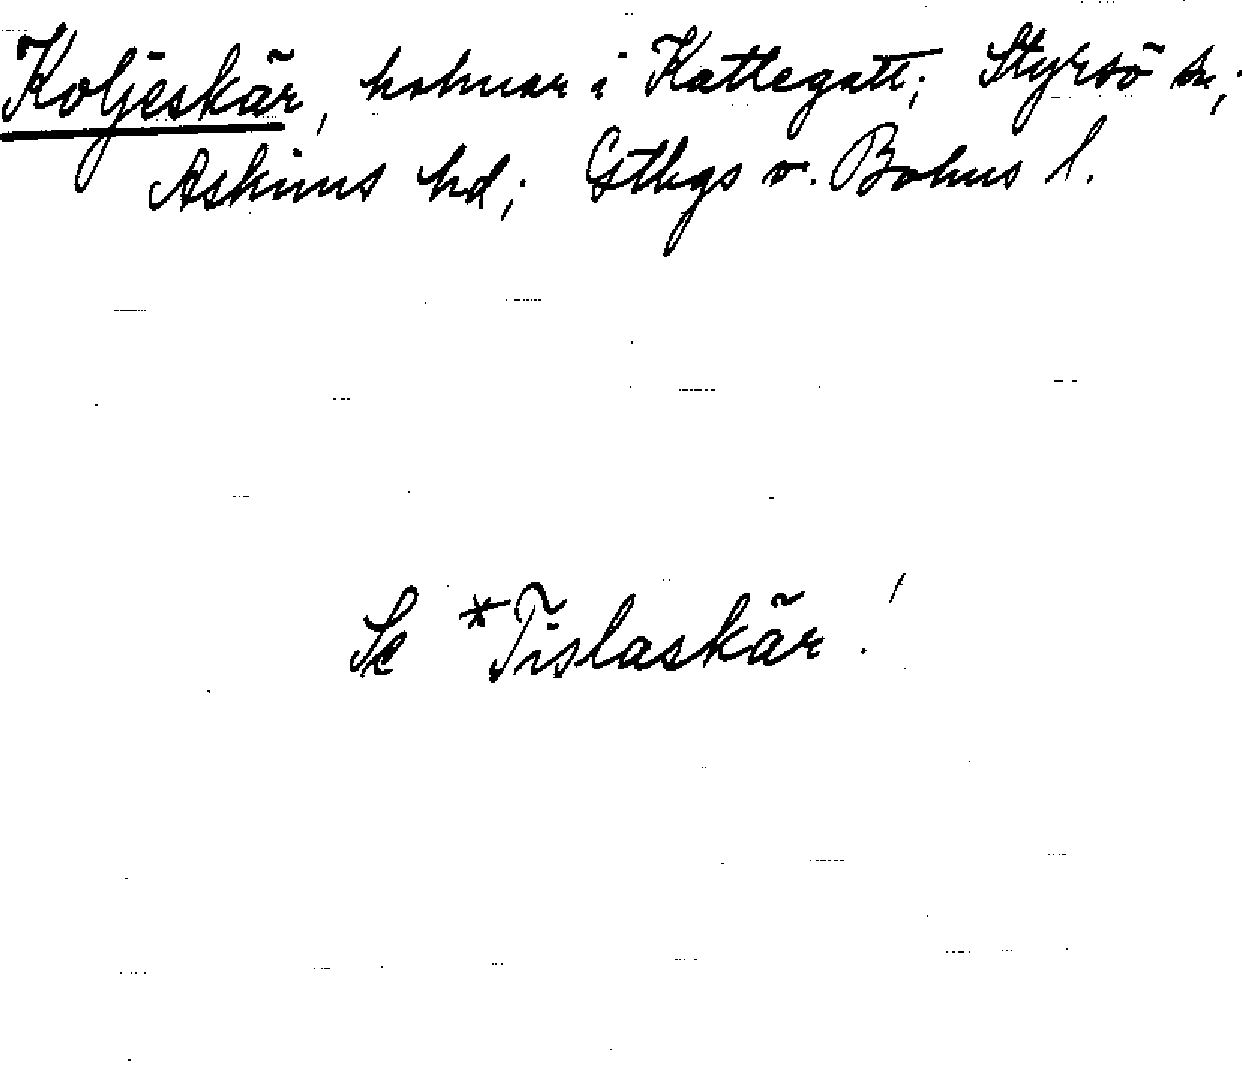 Koljeskär, holmar i Kattegatt; Styrsö sn;
Askims hd; Gtbgs o. Bohus l.
Se *Tislaskär!